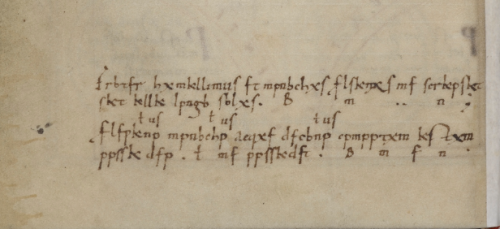 Frbtfr hxmkllimus ft mpnbchxs flsknxs mf scrkpskt
skt kllk lpngb sblxs. B m .. n .
ł us ł us ł us
flfrkcp mpnbchp aeqxf dfcbnp cpmpptxm kstxm
ppsskdfp . ł mf ppsskdft . B m f n .